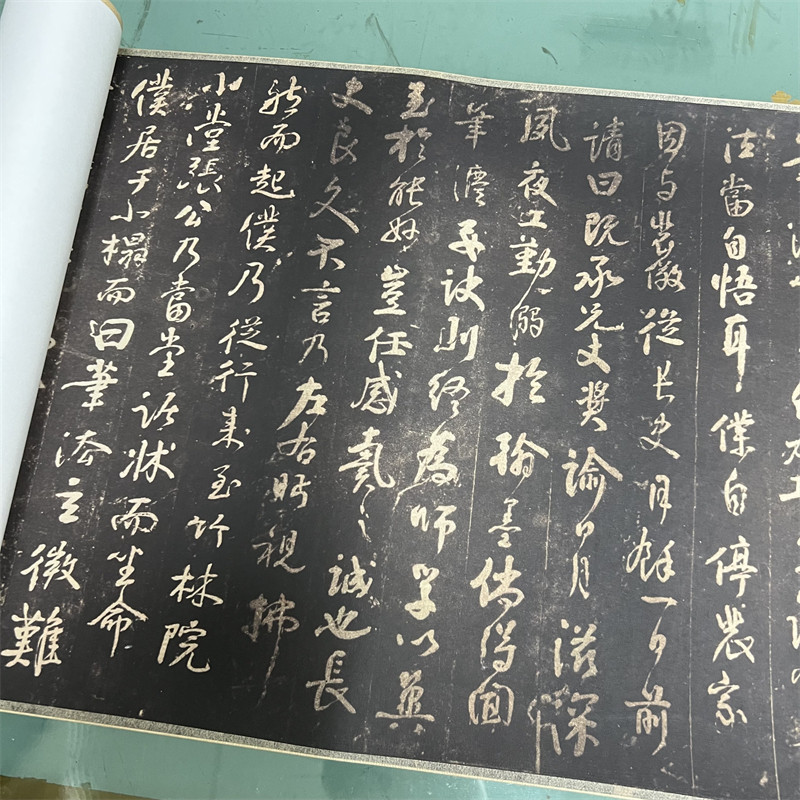 法當自悟耳僕自停裴家
因与裴儆從長史月餘一日前
請曰既承兄丈獎諭日月滋深
夙夜工勤溺於翰墨得
筆法要訣則終為師學以冀
至於能妙豈任感戴之誠也長
史良久不言乃左右眄視拂
然而起僕乃從行來至竹林院
小堂張公乃當堂踞牀而坐命
僕居于小榻而曰筆法玄微難